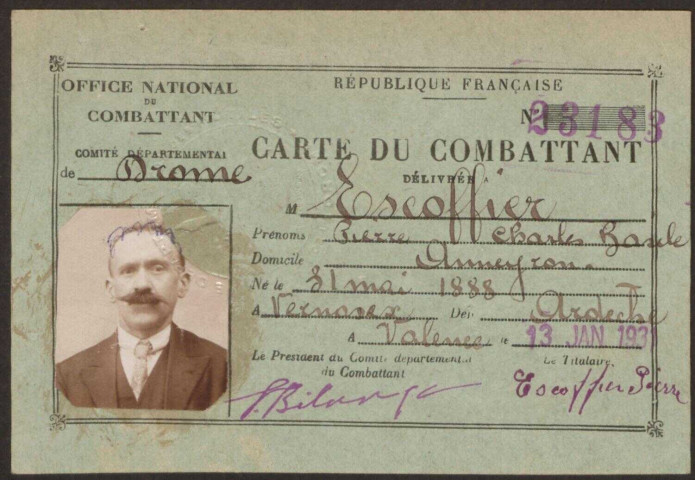 OFFICE NATIONAL
DU
COMBATTANT
COMITÉ DÉPARTEMENTAL
de Drome
RÉPUBLIQUE FRANÇAISE
N° 23183
CARTE DU COMBATTANT
DÉLIVRÉE A
M Escoffier
Prénoms Pierre Charles
Domicile Anneyron.
Né le 31 mai 1888
A Vernosex Dép Ardeche
A Valence le 13 JAN 193
Le Président du Comité départemental
du Combattant
Le Titulaire,
Escoffier Pierre